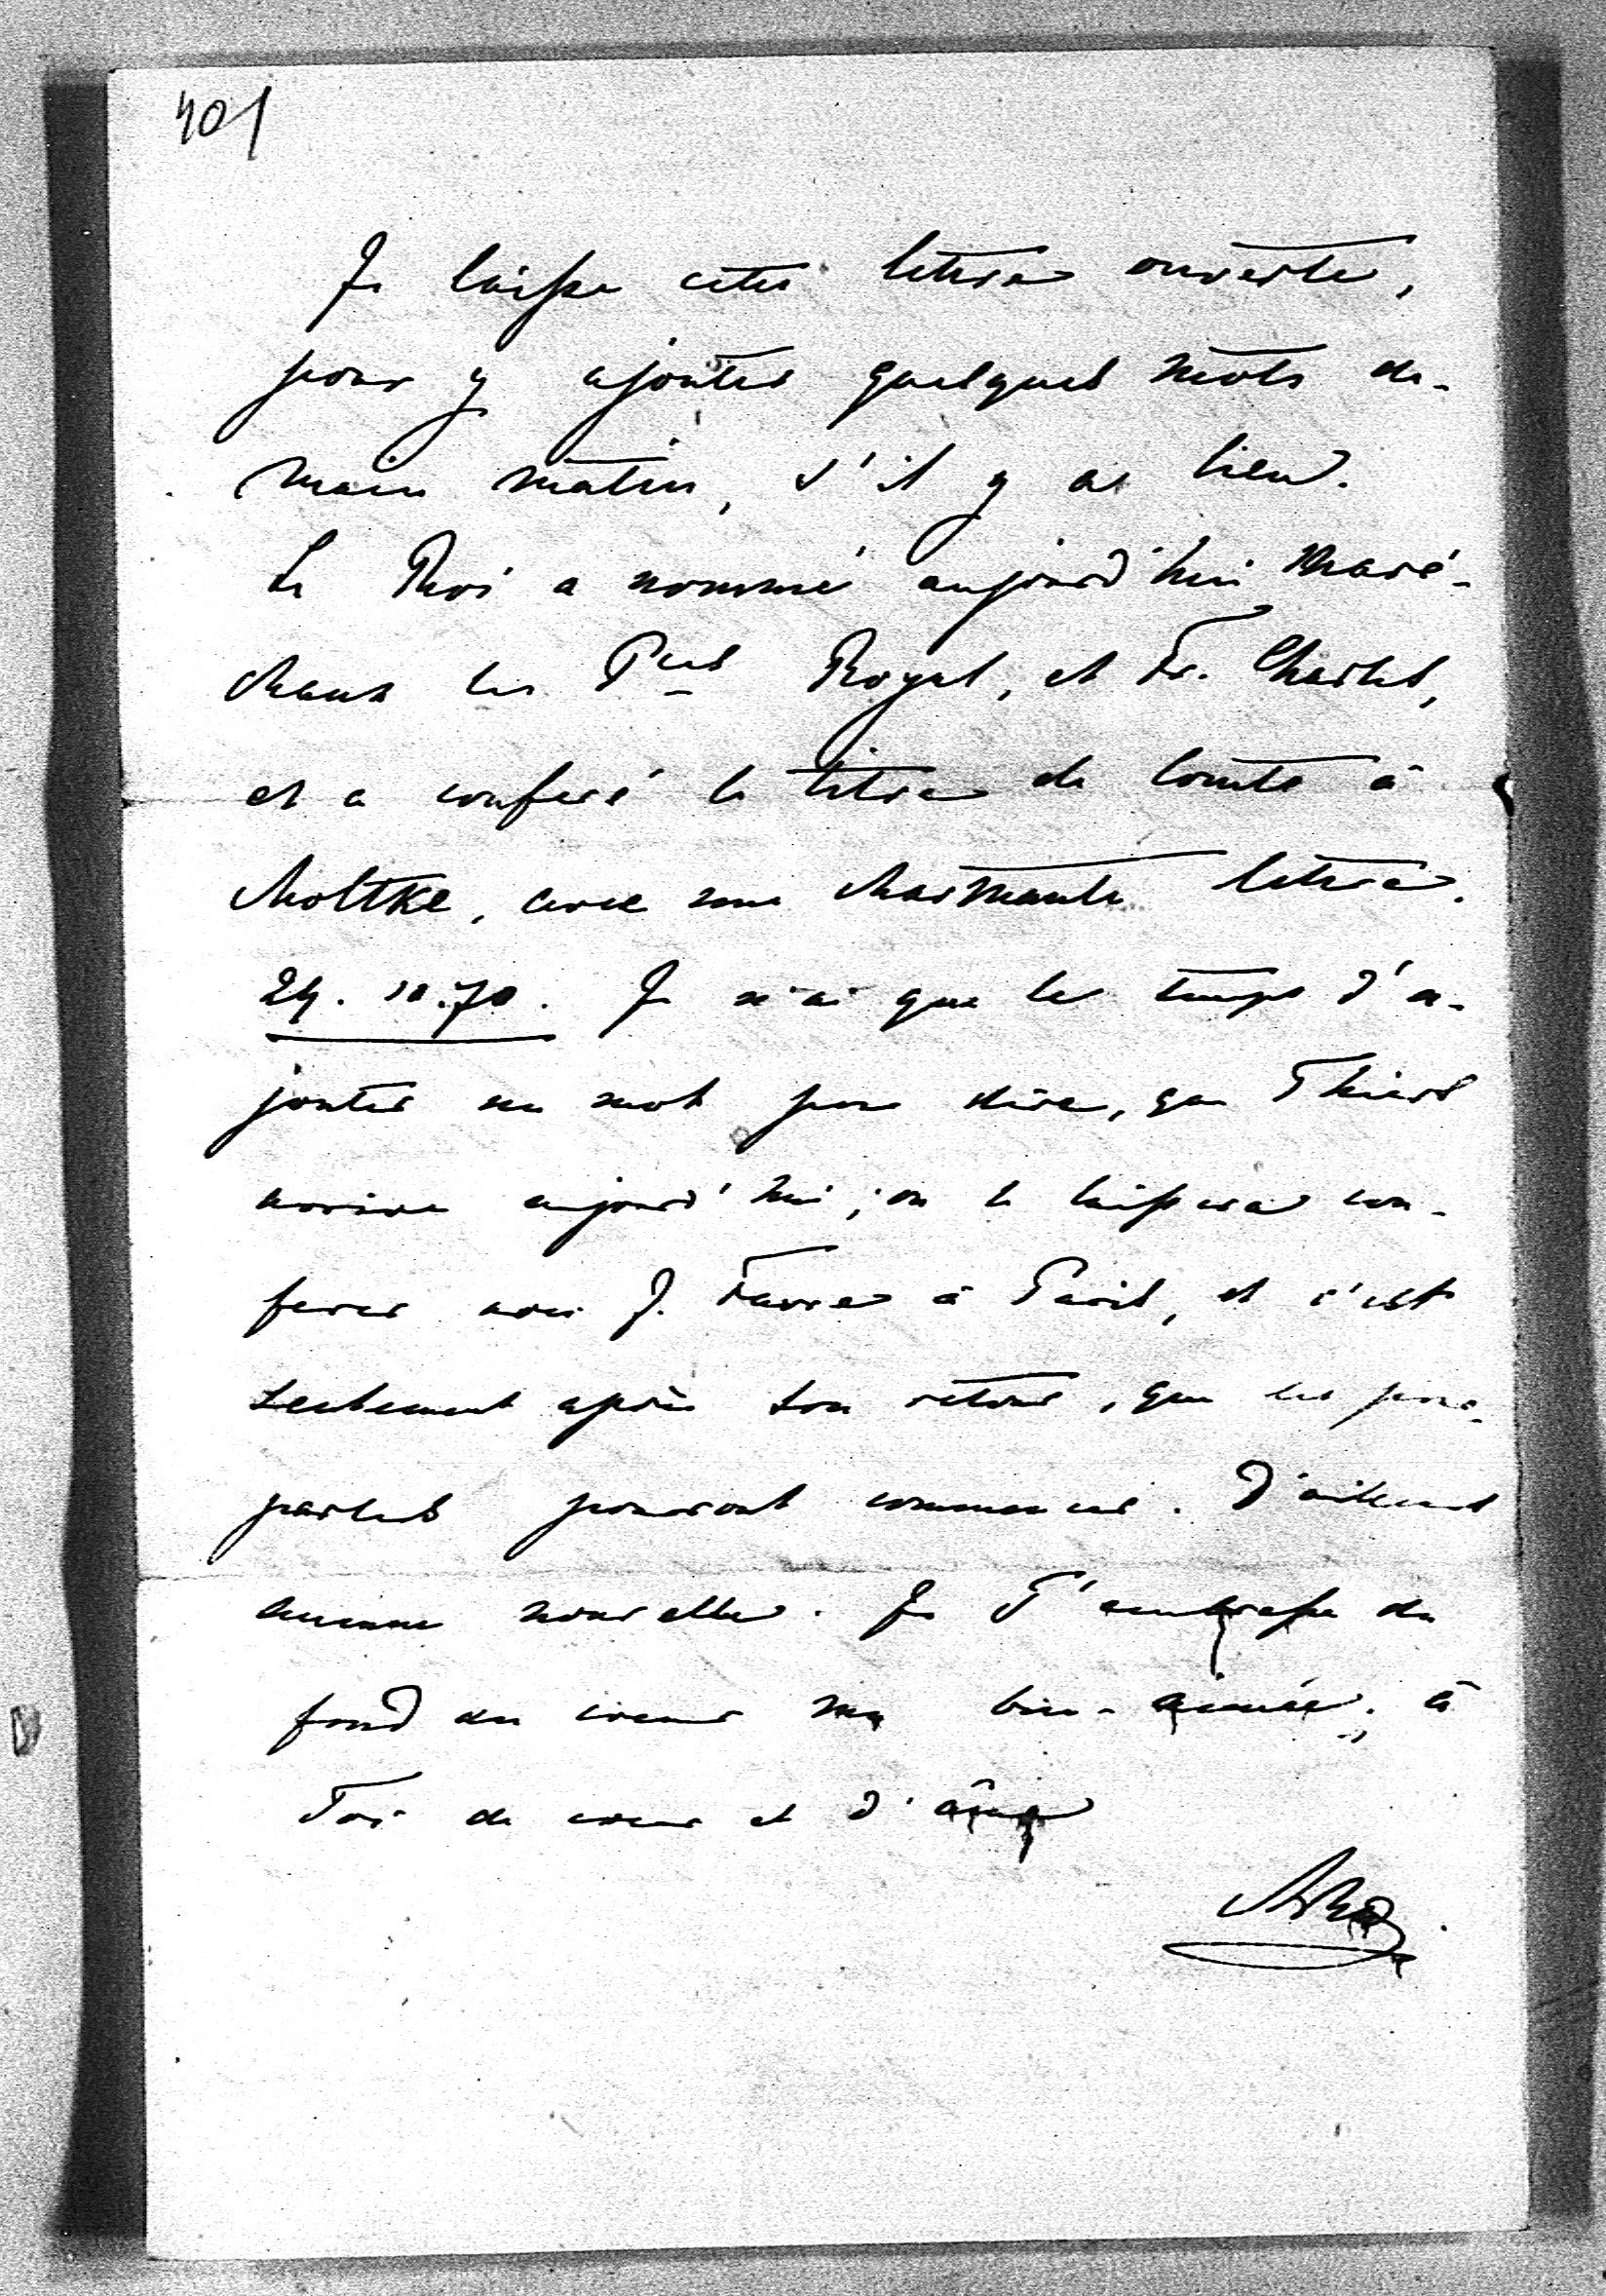 401
Je laisse cette lettre ouverte,
pour y ajouter quelques mots de-
main matin, s'il y a lieu.
Le Roi a nommé aujourd'hui Maré-
chaux les Pces Royal, et Fr. Charles,
et a conféré le titre de Comte à
Moltke, avec une charmante lettre.
29. 10. 70. Je n'ai que le temps d'a-
jouter un mot pour dire, que Thiers
arrive aujourd'hui; on le laissera con-
ferer avec J. Favre à Paris, et c'est
seulement après son retour, que les pour-
parlers pourront commencer. D'ailleurs
aucune nouvelle. Je T'embrasse du
fond du coeur ma bien-aimée; à
Toi de coeur et d'âme